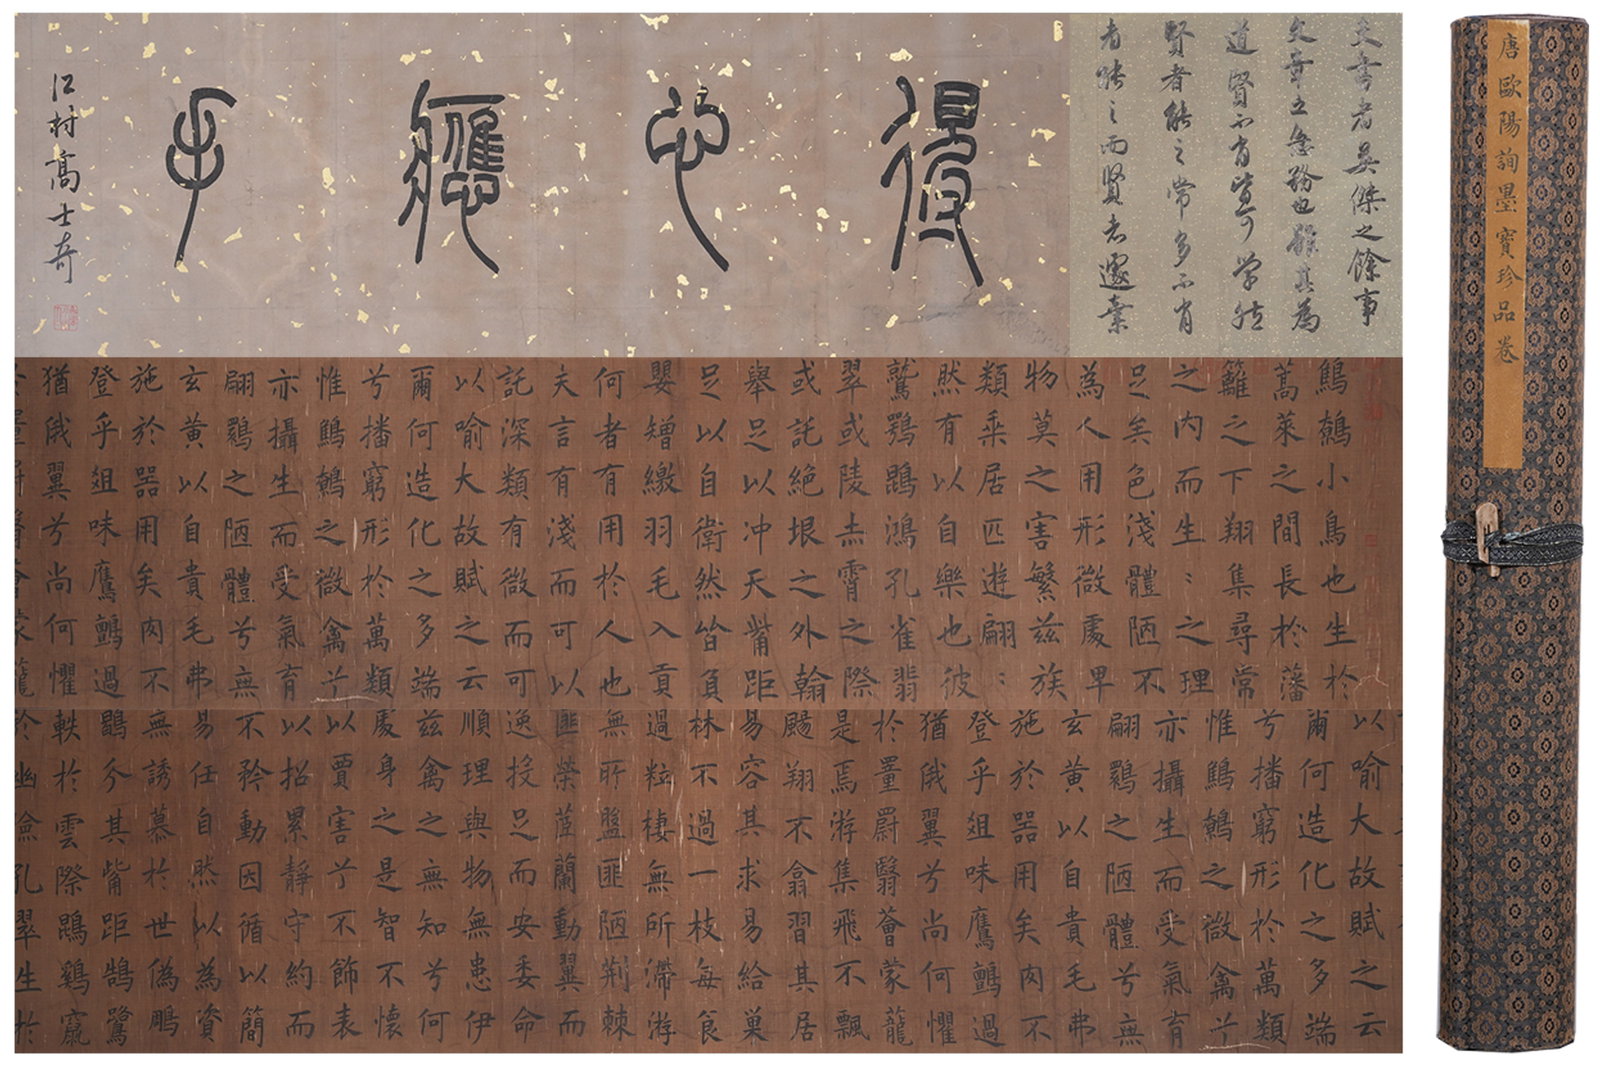 唐歐陽詢墨寶珍品卷
文章者英傑之餘事
文章之急務也雖其為
道賢不肖皆可學然
賢者能之常多不肖
者能之而賢者遽棄
得心應手
江村高士奇
鷦鷯小鳥也生於
蒿萊之間長於藩
籬之下翔集尋常
之內而生:之理
足矣色淺體陋不
為人用形微處卑
物莫之害繁茲族
類乘居匹遊翩:
然有以自樂也彼
鷲鶚鵾鴻孔雀翡
翠或陵赤霄之際
或託絕垠之外翰
舉足以冲天觜距
足以自衛然皆負
嬰矰繳羽毛入貢
何者有用於人也
夫言有淺而可以
託深類有微而可
以喻大故賦之云
爾何造化之多端
兮播窮形於萬類
惟鷦鷯之微禽兮
亦攝生而受氣育
翩鷄之陋體兮無
玄黃以自貴毛弗
施於器用矣肉不
登乎俎味鷹鸇過
猶俄翼兮尚何懼
以喻大故賦之云
爾何造化之多端
兮播窮形於萬類
惟鷦鷯之微禽兮
亦攝生而受氣育
翩鷄之陋體兮無
玄黃以自貴毛弗
施於器用矣肉不
登乎俎味鷹鸇過
猶俄翼兮尚何懼
於罿罻翳薈蒙籠
是焉游集飛不飄
颺翔不翕習其居
易容其求易給巢
林不過一枝每食
過粒棲無所滯游
無所盤匪陋荊棘
匪榮茝蘭動翼而
逸投足而安委命
順理與物無患伊
茲禽之無知兮何
處身之是智不懷
以賈害兮不飾表
以招累靜守約而
不矜動因循以簡
易任自然以為資
無誘慕於世偽鵰
鶡介其觜距鵠鷺
軼於雲際鵾鷄竄
於幽險孔翠生於